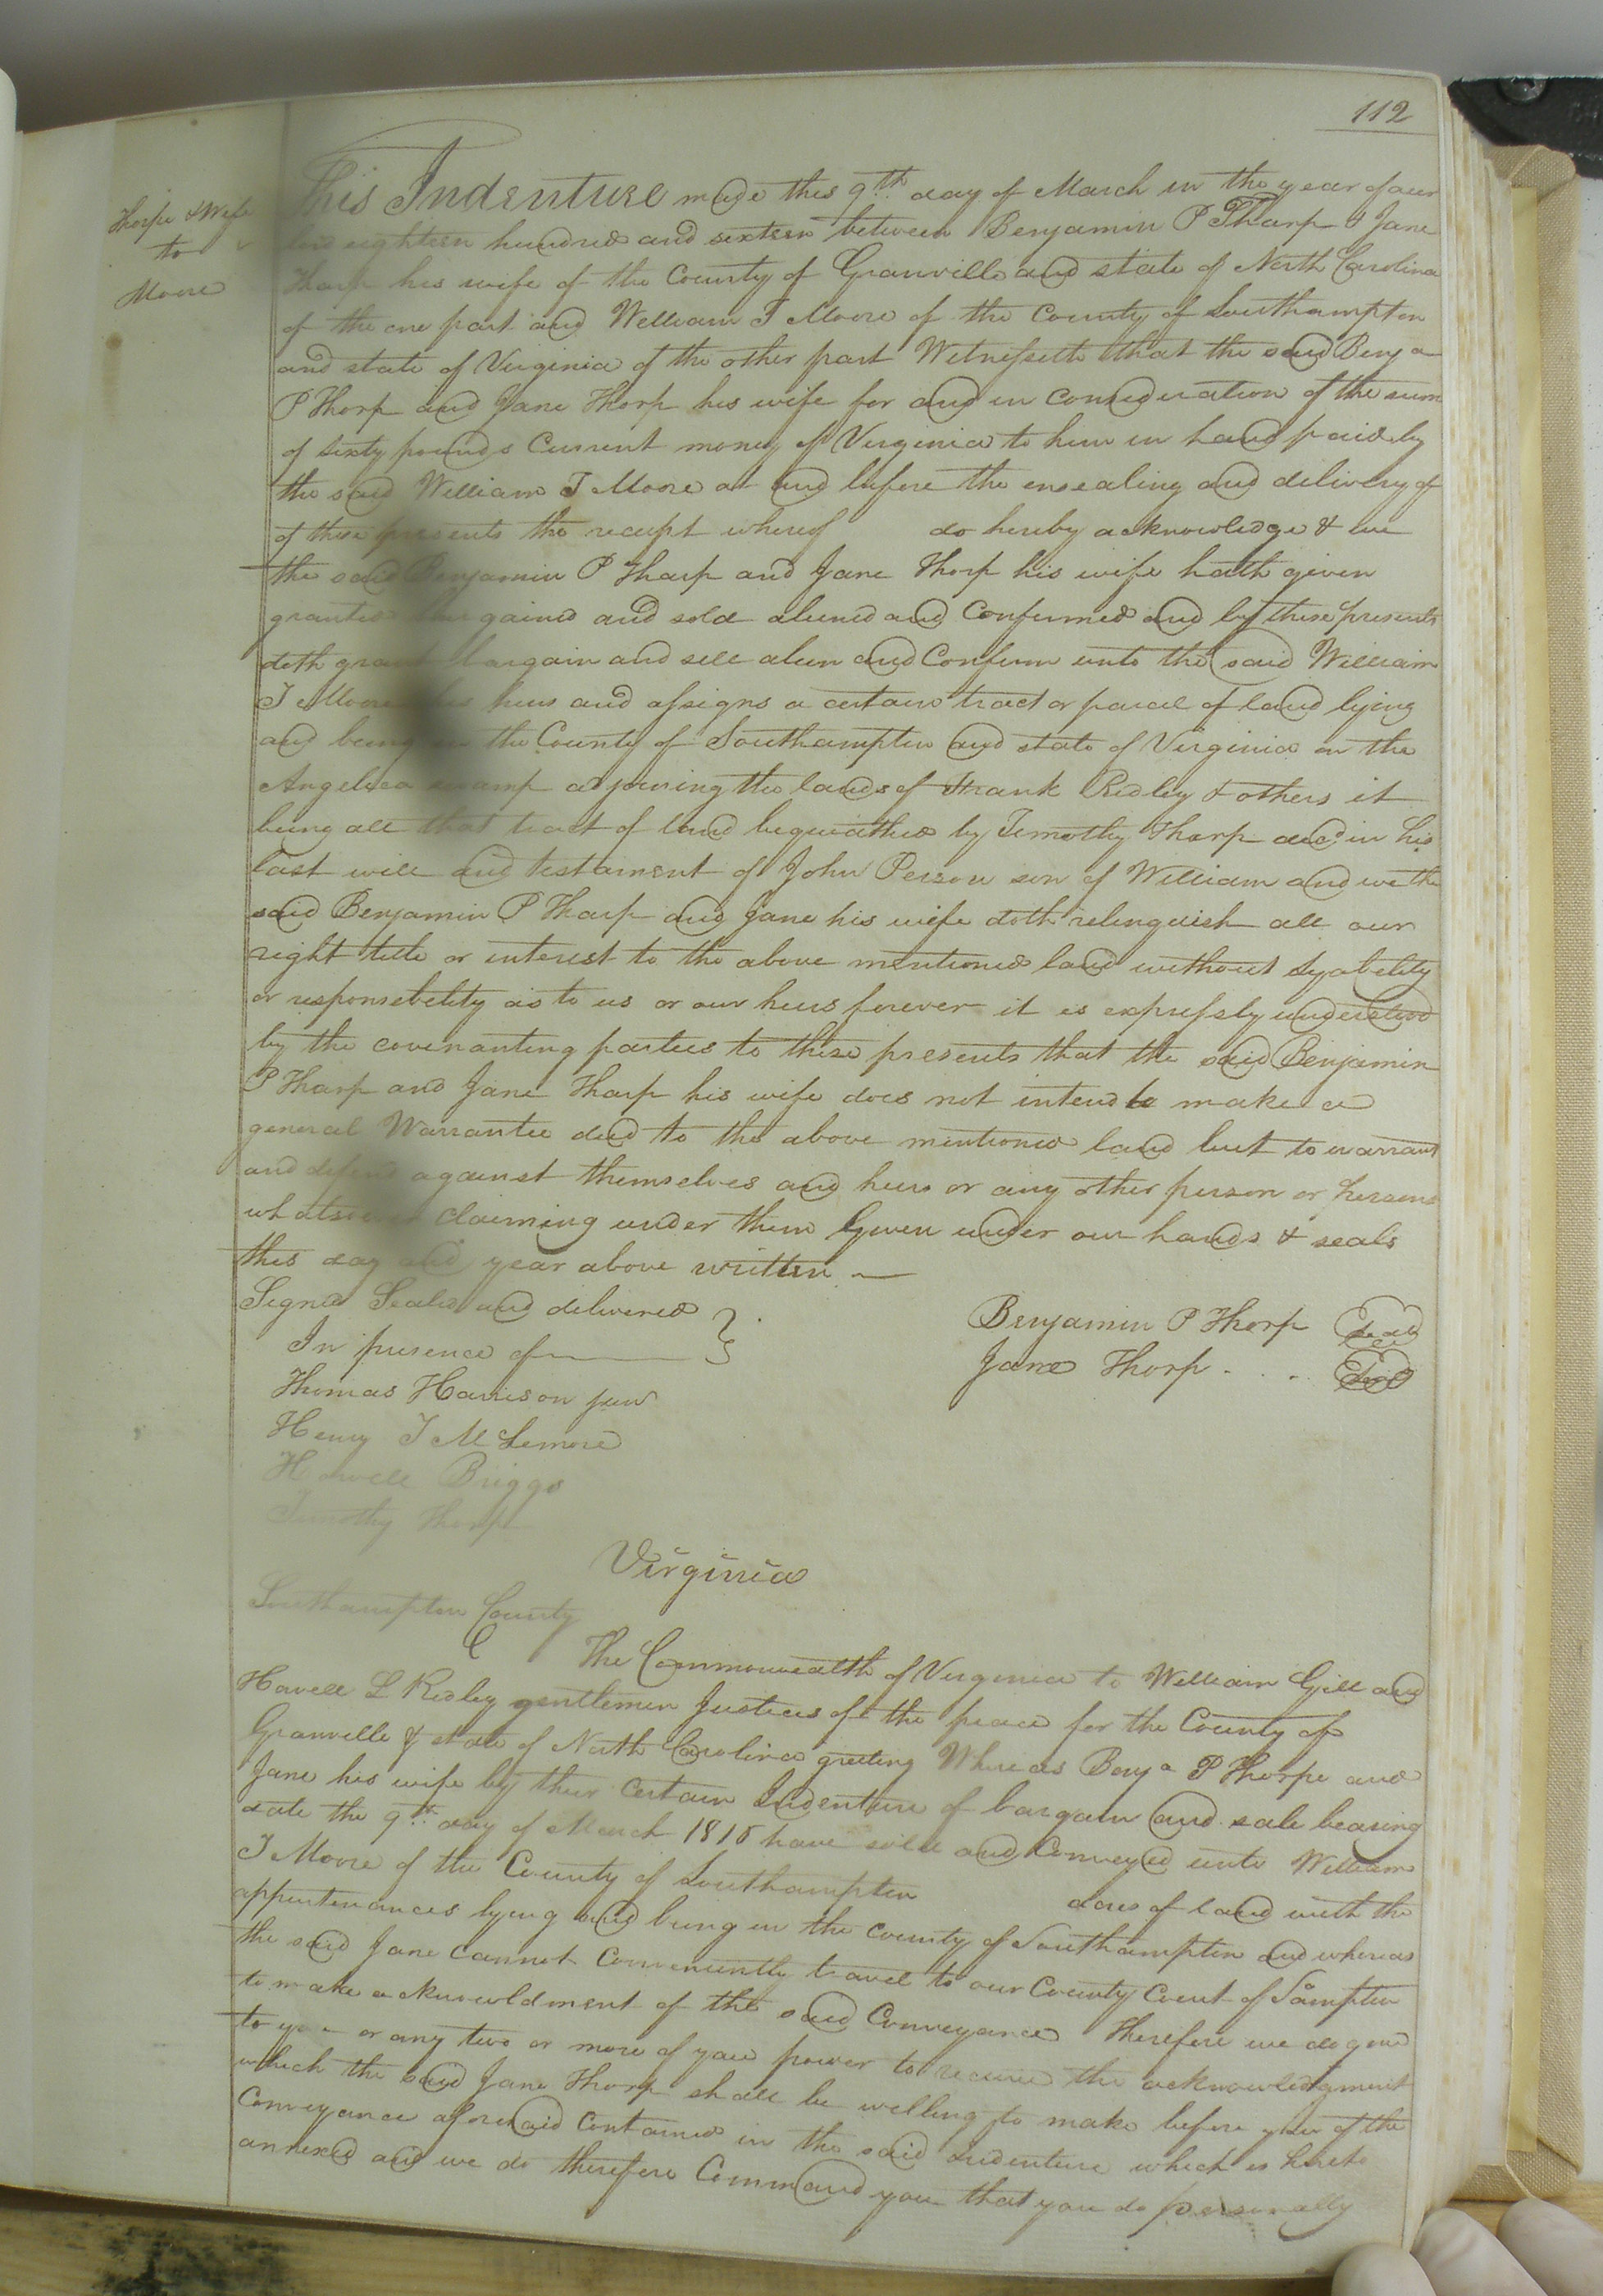 112
Thorpe & Wife
to
Moore
This Indenture made this 9th day of March in the year of our
lord eighteen hundred and sixteen between Benjamin P Tharp & Jane
Tharp his wife of the County of Granville and state of North Carolina
of the one part and William T Moore of the County of Southampton
and state of Virginia of the other part Witnesseth that the said Benja
P Thorp and Jane Thorp his wife for and in consideration of the sum
of sixty pounds Current money of Virginia to him in hand paid by
the said William T Moore at and before the ensealing and delivery of
of these presents the receipt whereof do hereby acknowledge & we
the said Benjamin P Tharp and Jane Thorp his wife hath given
granted bargained and sold aliened and Confirmed and by these presents
doth grant bargain and sell alien and Confirm unto the said William
T Moore his heirs and assigns a certain tract or parcel of land lying
and being in the County of Southampton and state of Virginia on the
Angelica swamp adjoining the lands of Frank Ridley & others it
being all that tract of land bequeathed by Timothy Tharp decd in his
last will and testament of John Person son of William and we the
said Benjamin P Tharp and Jane his wife doth relinquish all our
right title or interest to the above mentioned land without lyability
or responsebility as to us or our heirs forever it is expressly understood
by the covenanting parties to these presents that the said Benjamin
P Tharp and Jane Tharp his wife does not intend to make a
general Warrantee deed to the above mentioned land but to warrant
and defend against themselves and heirs or any other person or persons
whatsoever claiming under them Given under our hands & seals
this day and year above written
Signed Sealed and delivered
In presence of
Benjamin P Thorp Seal
Jane Thorp . . . Seal
Thomas Harrison junr
Henry T McLemore
Howell Briggs
Timothy Thorp
Virginia
Southampton County
The Commonwealth of Virginia to William Gill and
Howell L Ridley gentlemen Justices of the peace for the County of
Granville & state of North Carolina greeting Whereas Benja P Thorpe and
Jane his wife by their Certain Indenture of bargain and sale bearing
date the 9th day of March 1816 have sold and Conveyed unto William
T Moore of the County of Southampton acres of land with the
appurtenances lying and being in the County of Southampton and whereas
the said Jane cannot Conveniently travel to our County Court of Sampton
to make acknowldment of the said Conveyance Therefore we do give
to you or any two or more of you power to receive the acknowledgment
which the said Jane Thorp shall be willing to make before you of the
Conveyance aforesaid Contained in the said Indenture which is hereto
annexed and we do therefore Command you that you do personally